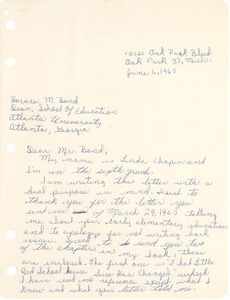 Oak Park Blvd.
Oak Park 37, Mich.
June 6, 1960
Horace M. Bond
Dean, School Of Education
Atlanta University
Atlanta, Georgia
Dear Mr. Bond,
My name is Linda Chapin and
I'm in the sixth grade.
I am writing this letter with a
dual purpose in mind. First to
thank you for the letter you
sent me of March 29, 1960 telling
me about your early elementary education
and to apology for not writing back
sooner. Second to send you two
of the chapters in my book, these
are inclosed. The first one is The Little
Red School House Sure Has Changed which
I have used no reference except what I
knew and what your letter told me.